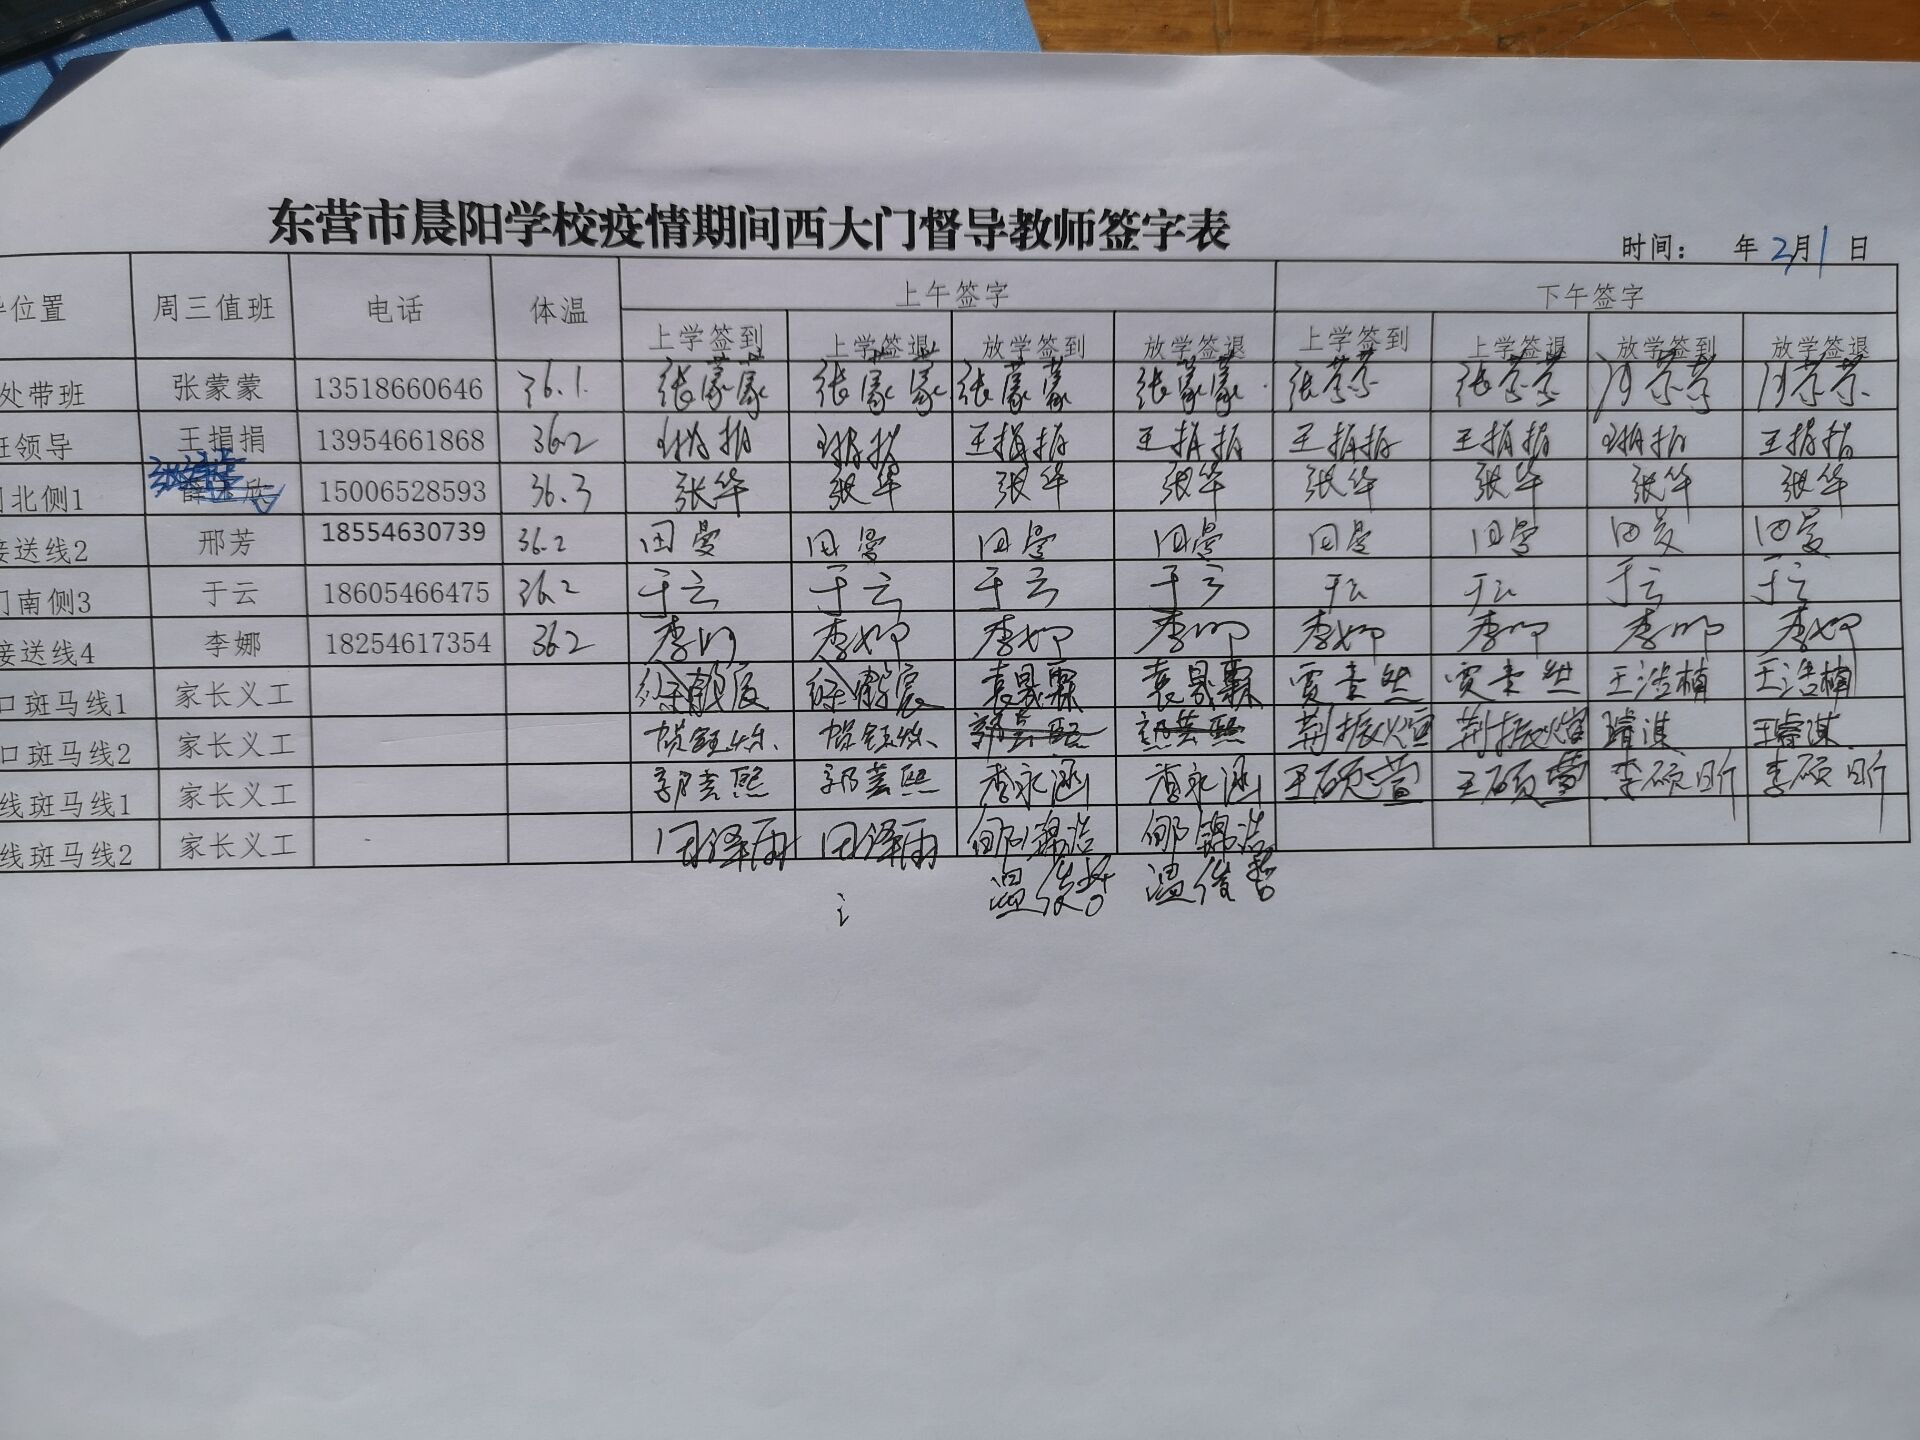 东营市晨阳学校疫情期间西大门督导教师签字表
时间： 年 2月1日
位置 周三值班 电话 体温 上午签字 下午签字
上学签到 上学签退 放学签到 放学签退 上学签到 上学签退 放学签到 放学签退
处带班 张蒙蒙 13518660646 36.1 张蒙蒙 张蒙蒙 张蒙蒙 张蒙蒙 张蒙蒙 张蒙蒙 张蒙蒙 张蒙蒙
班领导 王捐捐 13954661868 36.2 王捐捐 王捐捐 王捐捐 王捐捐 王捐捐 王捐捐 王捐捐 王捐捐
门北侧1 15006528593 36.3 张华 张华 张华 张华 张华 张华 张华 张华
接送线2 邢芳 18554630739 36.2 田曼 田曼 田曼 田曼 田曼 田曼 田曼 田曼
门南侧3 于云 18605466475 36.2 于云 于云 于云 于云 于云 于云 于云 于云
接送线4 李娜 18254617354 36.2 李娜 李娜 李娜 李娜 李娜 李娜 李娜 李娜
口斑马线1 家长义工 袁晟霖 袁晟霖 王浩楠 王浩楠
口斑马线2 家长义工 贺钰烁 贺钰烁 荆振煊 荆振煊 王睿淇 王睿淇
线斑马线1 家长义工 郭芸熙 郭芸熙 李永涵 李永涵 王硕萱 王硕萱 李硕昕 李硕昕
线斑马线2 家长义工 田泽雨 田泽雨 郇锦浩 郇锦浩
温俊哲 温俊哲